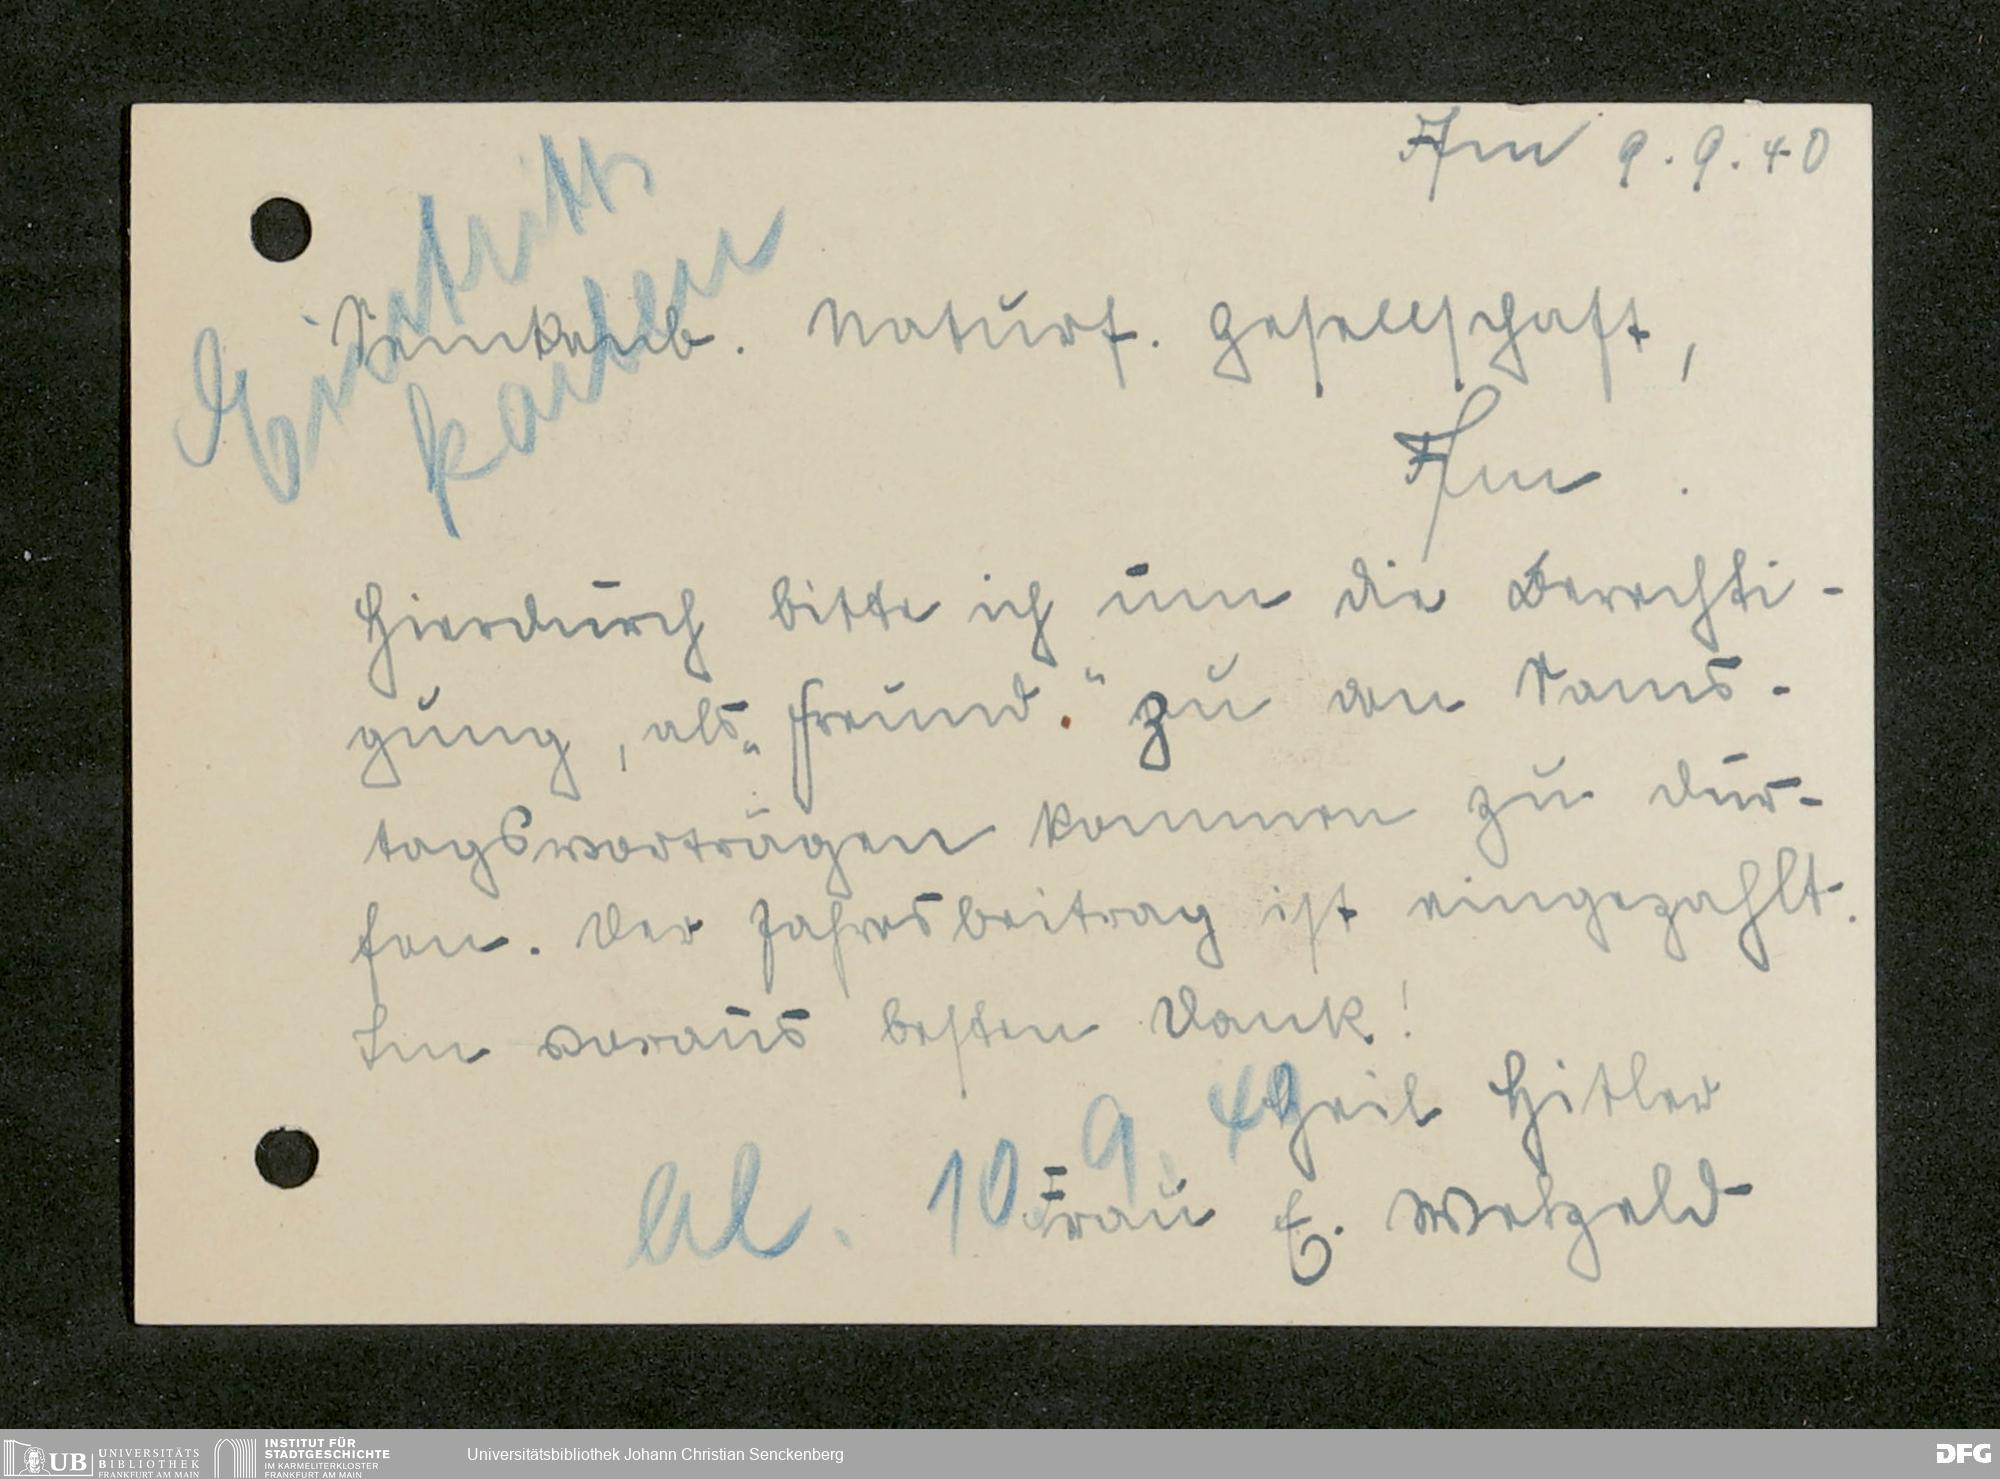 Ffm 9.9.40
Eintritts
karten
Senckenb. Naturf. Gesellschaft,
Ffm .
Hierdurch bitte ich um die Berechti-
gung, als „Freund." zu den Sams-
tagsvorträgen kommen zu dür-
fen. Der Jahresbeitrag ist eingezahlt.
Im voraus besten Dank!
Heil Hitler
Frau E. Wetzeld
10 9. 40
UB UNIVERSITÄTS
BIBLIOTHEK
FRANKFURT AM MAIN
INSTITUT FÜR
STADTGESCHICHTE
IM KARMELITERKLOSTER
FRANKFURT AM MAIN
Universitätsbibliothek Johann Christian Senckenberg
DFG